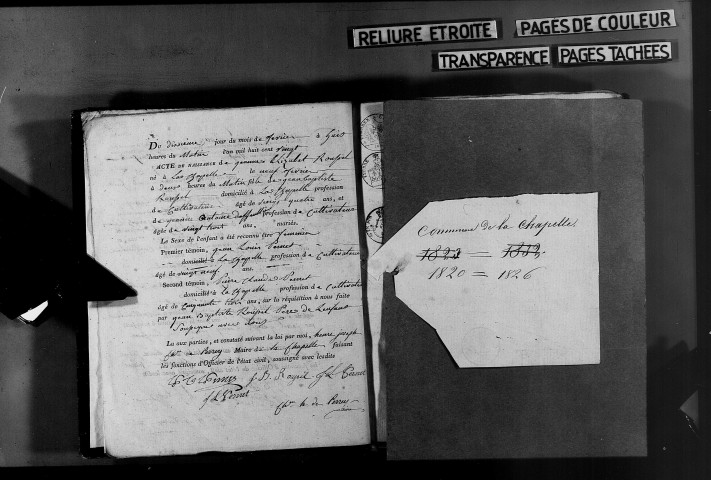 RELIURE ETROITE
PAGES DE COULEUR
TRANSPARENCE
PAGES TACHEES
Du dixieme jour du mois de fevrier à huit
heures du Matin l'an mil huit cent vingt
ACTE DE NAISSANCE de jeanne Roussel
né à La Chapelle le neuf fevrier
à deux heures du Matin de jean baptiste
Roussel domicilié à La Chapelle profession
de Cultivateur âgé de quatre ans, et
de jeanne profession de Cultivateur
âgée de vingt huit ans, mariés.
Le Sexe de l'enfant a été reconnu être feminin
Premier témoin, jean Louis Pernet
domicilié à La Chapelle profession de Cultivateur
âgé de vingt neuf ans.
Second témoin, Pierre Claude Pernet
domicilié à La Chapelle profession de Cultivateur
âgé de Cinquante ans; sur la réquisition à nous faite
par jean Baptiste Roussel Pere de Lenfant
Lu aux parties, et constaté suivant la loi par moi, joseph
de Perrey Maire de la Chapelle faisant
les fonctions d'Officier de l'état civil, soussigné avec lesdits
Pernet
de Perrey
Commune de la Chapelle.
1820 = 1826